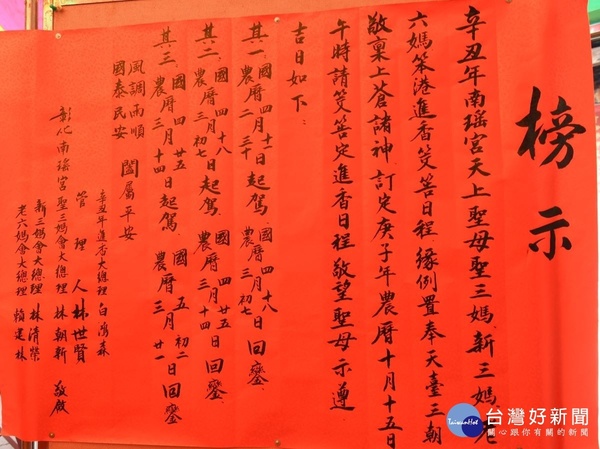 榜示
辛丑年南瑤宮天上聖母聖三媽新三媽老
六媽笨港進香筊筶日程緣例置奉天臺三朝
敬稟上蒼諸神訂定庚子年農曆十月十五日
午時請筊筶定進香日程敬望聖母示遵
吉日如下:
其一、國四月十一 農曆二月三十日起駕 國四月十八 農曆三月初七日回鑾
其二、國四月十八 農曆三月初七日起駕 國四月廿五 農曆三月十四日回鑾
其三、國四月廿五 農曆三月十四日起駕 國五月初二 農曆三月廿一日回鑾
風調雨順
國泰民安
闔屬平安
辛丑年進香大總理
管理人林世賢
彰化南瑤宮聖三媽會大總理林朝新 敬啟
新三媽會大總理林清榮
老六媽會大總理賴
台灣好新聞
TaiwanHot
關心跟你有關的新聞